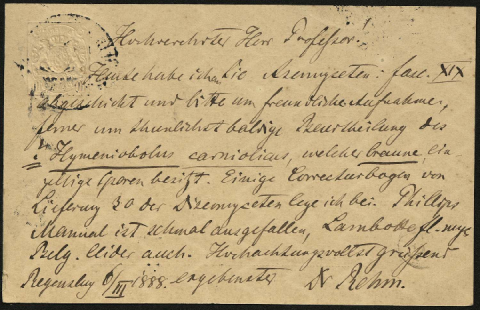 Hochverehrter Herr Professor!
Heute habe ich Sie Ascomyceten: fasc. XIX
abgeschickt und bitte um freundliche Aufnahme,
ferner um thunlichst baldige Beurtheilung des
Hymenobolus carniolicus, welcher braune, ein-
zellige Sporen besitzt. Einige Correcturbogen von
Lieferung 30 der Discomyceten lege ich bei. Phillips
Manual ist schmal ausgefallen, Lambotte fl. myc.
Belg. leider auch. Hochachtungsvollst grüssend
Regensburg 6/III 1888. ergebenster Dr Rehm.